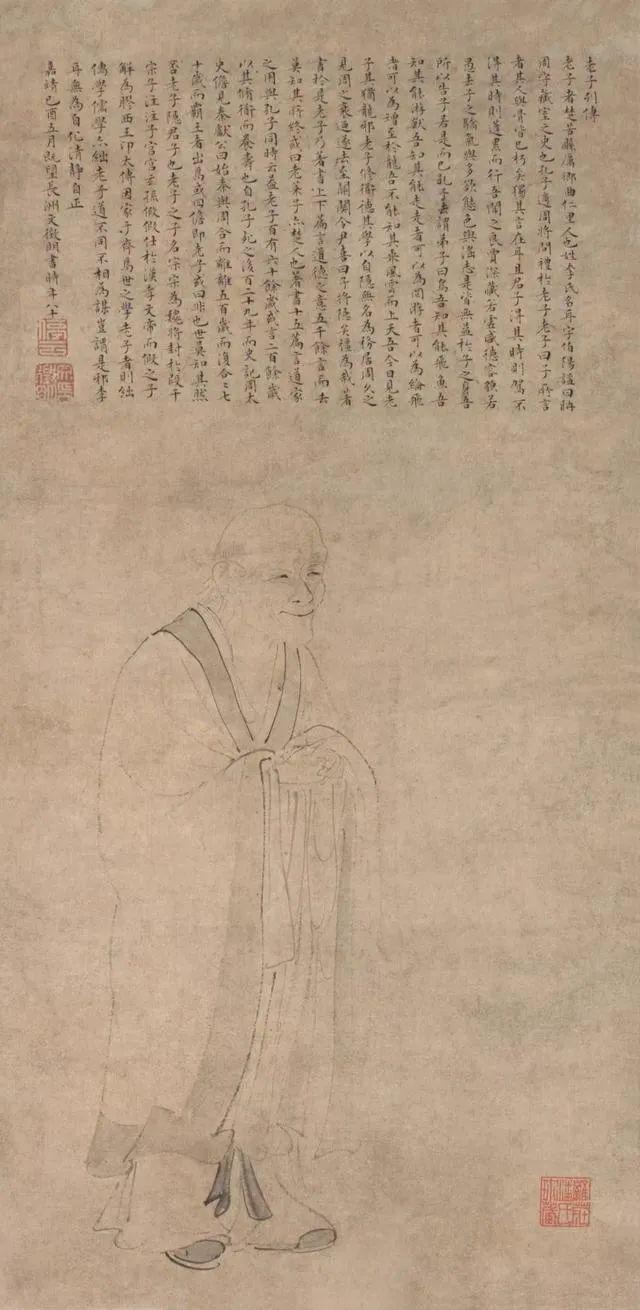 老子列傳
老子者楚苦縣厲鄉曲仁里人也姓李氏名耳字伯陽謚曰聃
周守藏室之史也孔子適周將問禮於老子老子曰子所言
者其人與骨皆已朽矣獨其言在耳且君子得其時則駕不
得其時則蓬累而行吾聞之良賈深藏若虛盛德容貌若
愚去子之驕氣與多欲態色與淫志是皆無益於子之身吾
所以告子若是而已孔子去謂弟子曰鳥吾知其能飛魚吾
知其能游獸吾知其能走走者可以為罔游者可以為綸飛
者可以為矰至於龍吾不能知其乘風雲而上天吾今日見老
子其猶龍邪老子修衜德其學以自隱無名為務居周久之
見周之衰迺遂去至關關令尹喜曰子將隱矣彊為我著
書於是老子乃著書上下篇言道德之意五千餘言而去
莫知其所終或曰老萊子亦楚人也著書十五篇言道家
之用與孔子同時云蓋老子百有六十餘歲或言二百餘歲
以其脩衜而養壽也自孔子死之後百二十九年而史記周太
史儋見秦獻公曰始秦與周合而離離五百歲而復合〻七
十歲而霸王者出焉或曰儋即老子或曰非也世莫知其然
否老子隱君子也老子之子名宗宗為魏將封於段干
宗子注注子宮宮玄孫假假仕於漢孝文帝而假之子
解為膠西王卬太傅因家于齊焉世之學老子者則絀
儒學儒學亦絀老子道不同不相為謀豈謂是邪李
耳無為自化清靜自正
嘉靖己酉五月既望長洲文徵明書時年八十